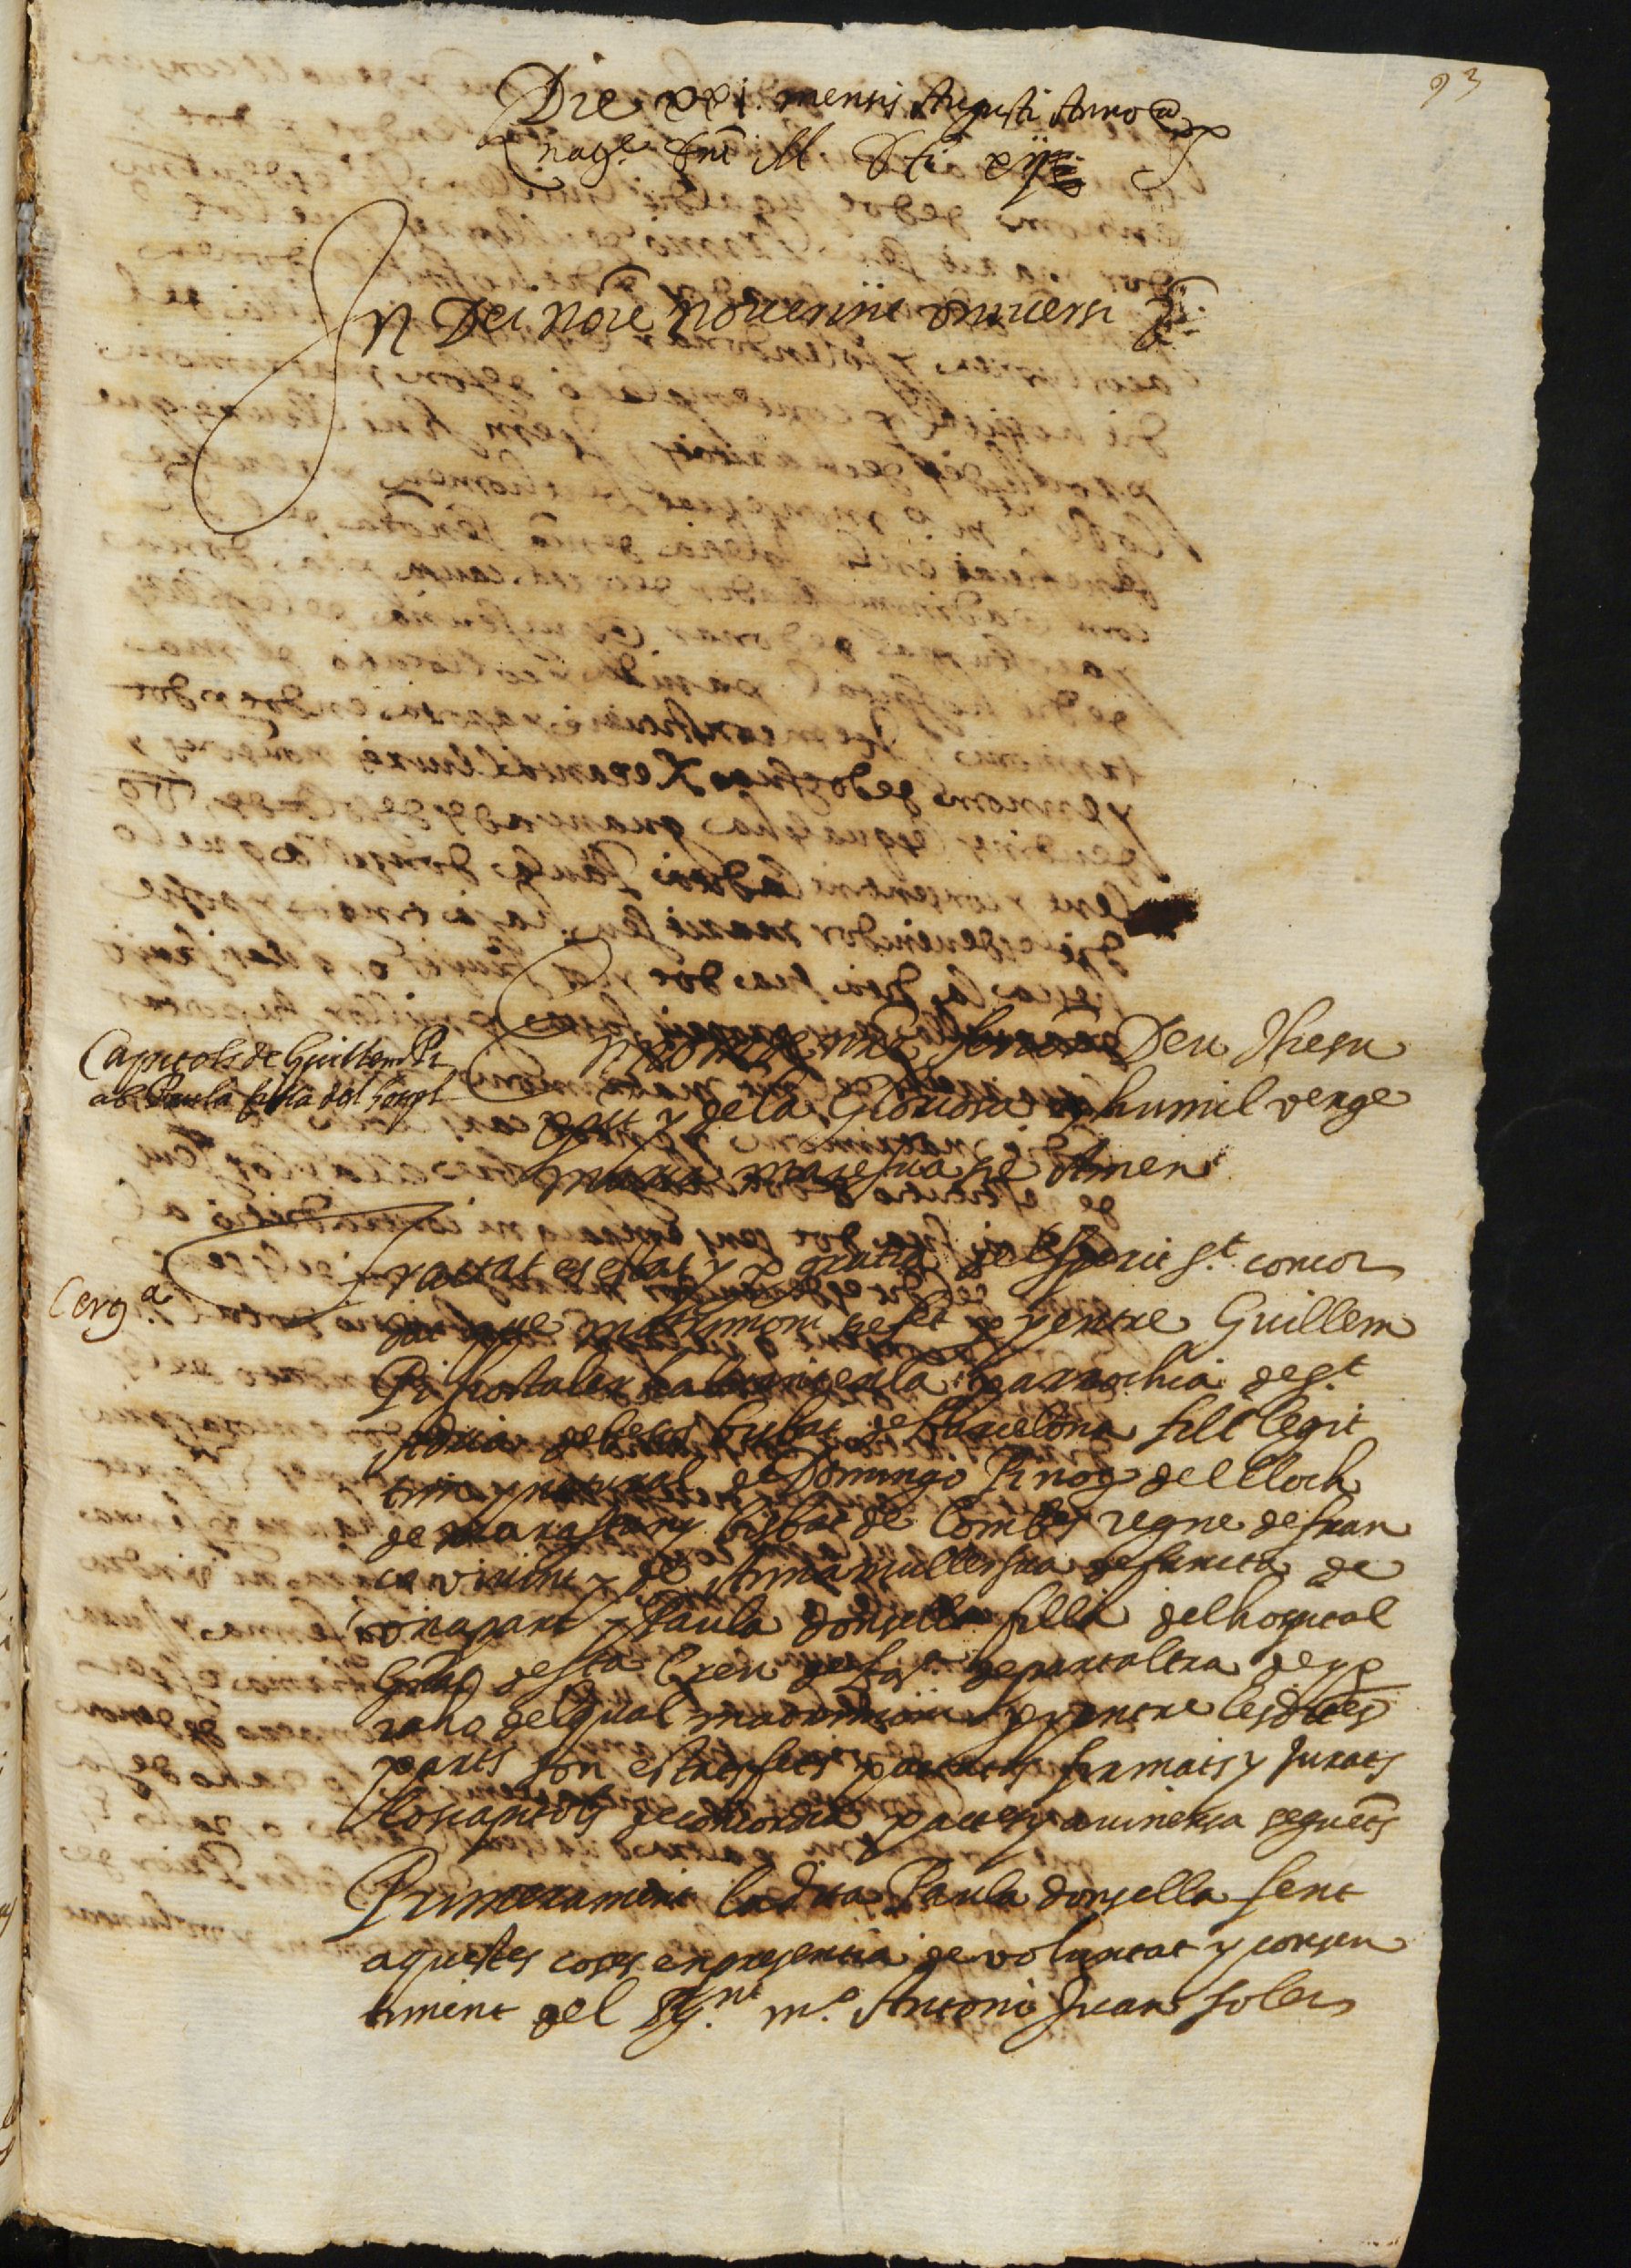 93
Die xxi. mensis Augusti Anno a
natte. Dni M Dc xiij
In Dei noie Noverint universi &
Capitols de Guillem Pi
ab Paula filla del hospl
En nom de nre senor Deu Jhesu
christ y de la Gloriosa y humil verge
Maria mare sua sie Amen
Cerga.
Tractat es estat y p gratia del Sperit St. concor
dat que matrimoni se fet p y entre Guillem
Pi hostaler habitant en la parrochia de St.
Adria de besos bisbat de Barcelona fill legit
tim y natural de Domingo Pi del lloch
de bisbat de Comenges regne de fran
ca vivint y de Anna muller sua defuncta de
una part y Paula donsella filla del hospital
Gnal de Sta Creu de Bar. de part altra de y p
raho del qual matrimoni p y entre les dites
parts son estats fets pactats firmats y jurats
los capitols de concordia pactes y avinensa seguets
Primerament la dita Paula donsella fent
aquestes coses en presentia de voluntat y consen
timent del Rnt. mo. Antoni Juan Soler